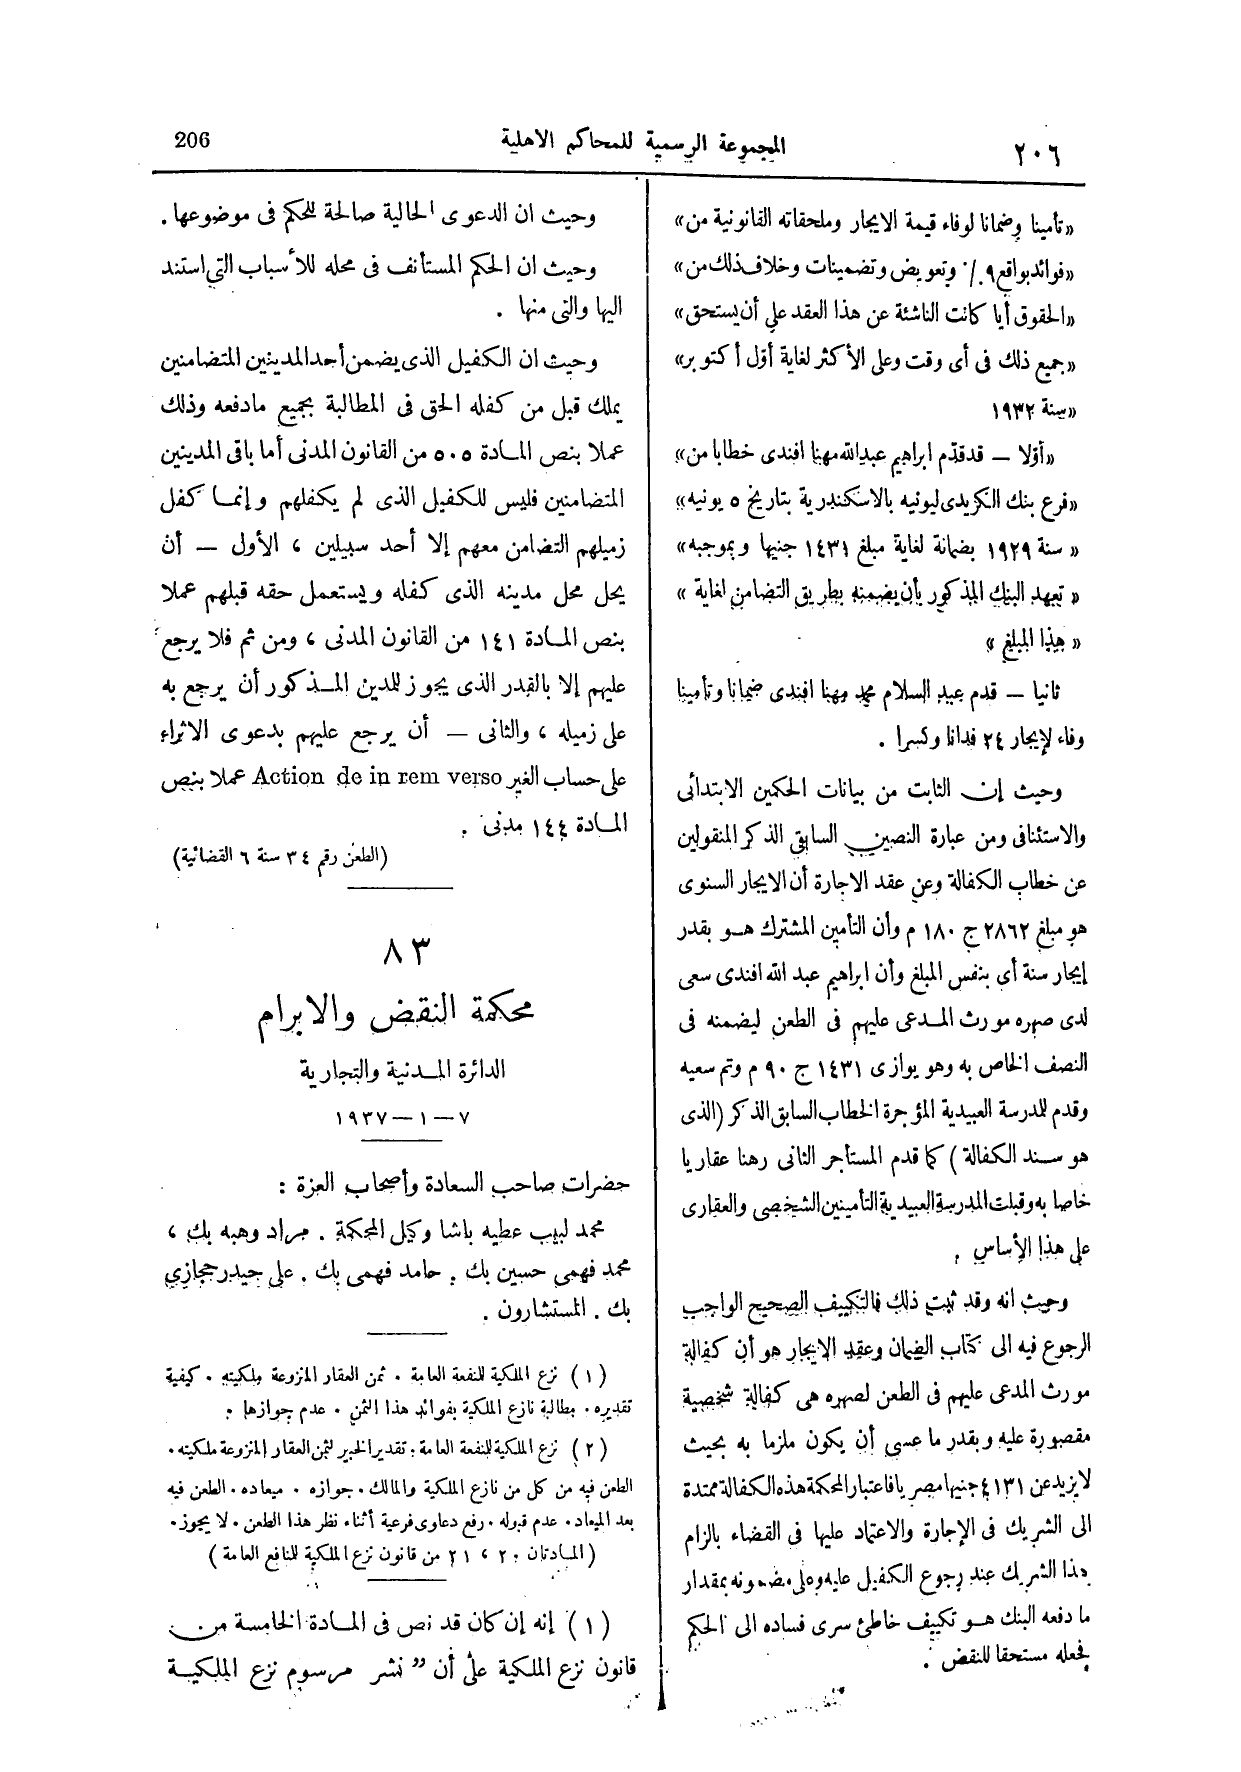 206
المجموعة الرسمية للمحاكم الاهلية
٢٠٦
«تأمينا وضمانا لوفاء قيمة الايجار وملحقاته القانونية من»
«فوائد بواقع ٩ ٪ وتعويض وتضمينات وخلاف ذلك من»
«الحقوق أيا كانت الناشئة عن هذا العقد على أن يستحق»
«جميع ذلك فى أى وقت وعلى الأكثر لغاية أوّل أكتوبر»
«سنة ١٩٣٢
«أوّلا — قد قدّم ابراهيم عبدالله مهنا افندى خطابا من»
«فرع بنك الكريدى ليونيه بالاسكندرية بتاريخ ٥ يونيه»
« سنة ١٩٢٩ بضمانة لغاية مبلغ ١٤٣١ جنيها وبموجبه»
« تعهد البنك المذكور بأن يضمنه بطريق التضامن لغاية »
« هذا المبلغ »
ثانيا — قدم عبد السلام محمد مهنا افندى ضمانا وتأمينا
وفاء لإيجار ٢٤ فدانا وكسرا .
وحيث إن الثابت من بيانات الحكمين الابتدائى
والاستئنافى ومن عبارة النصين السابق الذكر المنقولين
عن خطاب الكفالة وعن عقد الاجارة أن الايجار السنوى
هو مبلغ ٢٨٦٢ ج ١٨٠ م وأن التأمين المشترك هو بقدر
إيجار سنة أى بنفس المبلغ وأن ابراهيم عبد الله افندى سعى
لدى صهره مورث المدعى عليهم فى الطعن ليضمنه فى
النصف الخاص به وهو يوازى ١٤٣١ ج ٩٠ م وتم سعيه
وقدم للمدرسة العبيدية المؤجرة الخطاب السابق الذكر (الذى
هو سند الكفالة) كما قدم المستأجر الثانى رهنا عقاريا
خاصا به وقبلت المدرسة العبيدية التأمينين الشخصى والعقارى
على هذا الأساس .
وحيث انه وقد ثبت ذلك فالتكييف الصحيح الواجب
الرجوع فيه الى كتاب الضمان وعقد الايجار هو أن كفالة
مورث المدعى عليهم فى الطعن لصهره هى كفالة شخصية
مقصورة عليه وبقدر ما عسى أن يكون ملزما به بحيث
لا يزيد عن ١٤٣١ جنيها مصريا فاعتبار المحكمة هذه الكفالة ممتدة
الى الشريك فى الإجارة والاعتماد عليها فى القضاء بالزام
هذا الشريك عند رجوع الكفيل عليه وعلى مضمونه بمقدار
ما دفعه البنك هو تكييف خاطئ سرى فساده الى الحكم
فجعله مستحقا للنقض .
وحيث ان الدعوى الحالية صالحة للحكم فى موضوعها .
وحيث ان الحكم المستأنف فى محله للأسباب التى استند
اليها والتى منها .
وحيث ان الكفيل الذى يضمن أحد المدينين المتضامنين
يملك قبل من كفله الحق فى المطالبة بجميع مادفعه وذلك
عملا بنص المادة ٥٠٥ من القانون المدنى أما باقى المدينين
المتضامنين فليس للكفيل الذى لم يكفلهم وإنما كفل
زميلهم التضامن معهم إلا أحد سبيلين ، الأول — أن
يحل محل مدينه الذى كفله ويستعمل حقه قبلهم عملا
بنص المادة ١٤١ من القانون المدنى ، ومن ثم فلا يرجع
عليهم إلا بالقدر الذى يجوز للدين المذكور أن يرجع به
على زميله ، والثانى — أن يرجع عليهم بدعوى الاثراء
على حساب الغير Action de in rem verso عملا بنص
المادة ١٤٤ مدنى .
(الطعن رقم ٣٤ سنة ٦ القضائية)
٨٣
محكمة النقض والابرام
الدائرة المدنية والتجارية
٧ — ١ — ١٩٣٧
حضرات صاحب السعادة وأصحاب العزة :
محمد لبيب عطيه باشا وكيل المحكمة . مراد وهبه بك ،
محمد فهمى حسين بك . حامد فهمى بك . على حيدر حجازي
بك . المستشارون .
(١) نزع الملكية للنفعة العامة . ثمن العقار المنزوعة ملكيته . كيفية
تقديره . مطالبة نازع الملكية بفوائد هذا الثمن . عدم جوازها .
(٢) نزع الملكية للنفعة العامة . تقدير الخبير لثمن العقار المنزوعة ملكيته .
الطعن فيه من كل من نازع الملكية والمالك . جوازه . ميعاده . الطعن فيه
بعد الميعاد . عدم قبوله . رفع دعاوى فرعية أثناء نظر هذا الطعن . لا يجوز .
(المادتان ٢٠ ، ٢١ من قانون نزع الملكية للنافع العامة)
(١) إنه إن كان قد نص فى المادة الخامسة من
قانون نزع الملكية على أن ” نشر مرسوم نزع الملكية